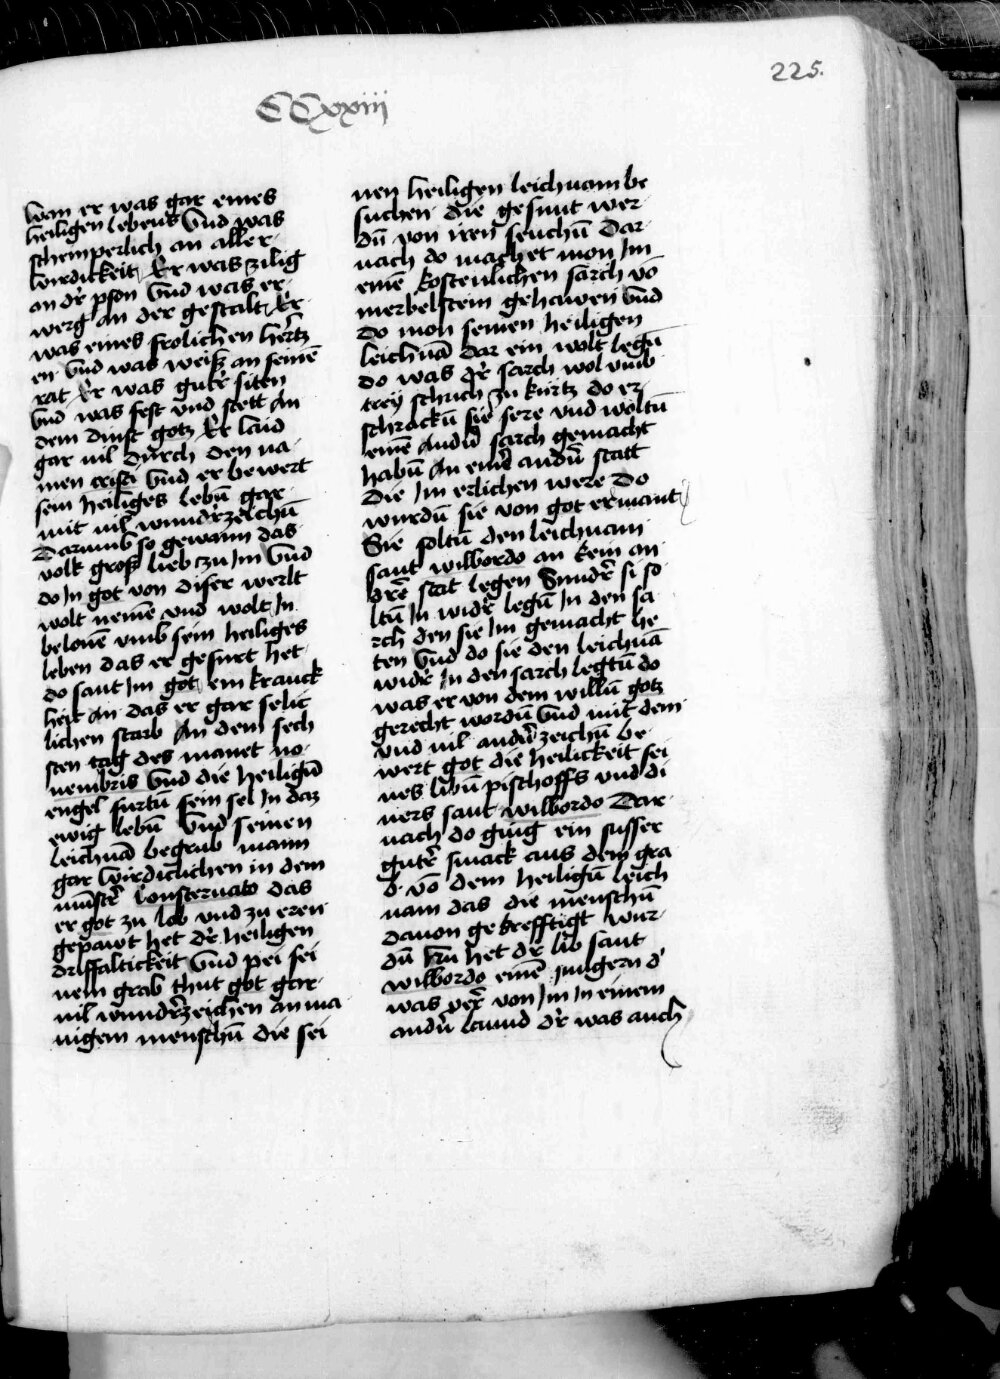 225.
CCxxiij
wan er was gar eines
heiligen lebens Vnd was
schemperlich an aller
wirdickeit Er was zilig
an dr̓ pson Vnd was er
werg an der gestalt Er
was eines frolichen hertz
en Vnd was weiß an seinē
rat Er was gutr̓ siten
Vnd was fest vnd stett An
dem dinst gotz Er laid
gar vil durch den na
men cristi Vnd er bewert
sein heiliges lebn̄ gar
mit vil wundr̓zeichn̄
Darumb so gewann das
volk groß lieb czu Im Vnd
do In got von diser werlt
wolt nemē vnd wolt In
belonē vmb sein heiliges
leben das er gefurt het
do sant Im got ein kranck
heit An das er gar selic
lichen starb An dem sech
sten tag des manet no
uembris Vnd die heilign̄
engel furtn̄ sein sel In daz
ewig lebn̄ Vnd seinen
leichnā begrub mann
gar wirdiclichen in dem
mūnstr̓ Consteruato das
er got zu lob vnd zu eren
gepawt het dr̓ heiligen
driffaltickeit Vnd pei sei
nem grab thut got gar
vil wundr̓zeichen an ma
nigem menschn̄ die sei
nen heiligen leichnam be
suchen die gesunt wer
dn̄ von iren seuchn̄ Dar
nach do machet mon Im
einē kostenlichen sarch vō
merbelstein gehawen Vnd
do mon seinen heiligen
leichnā dar ein wolt legn̄
do was dr̓ sarch wol vmb
trey schuch zu kurtz do er
schrackn̄ sie sere vnd woltn̄
einē Andn̄ sarch gemacht
habn̄ An einē andn̄ statt
Die Im erlichen were Do
wurdn̄ sie von got ermant
Sie soltn̄ den leichnam
sant wilbordo an kein an
dr̓e stat legen Sundr̓ si so
ltn̄ In widr̓ legn̄ In den sa
rch den sie Im gemacht he
ten Vnd do sie den leichnā
widr̓ In den sarch legtn̄ do
was er von dem willn̄ gotz
gerecht wordn̄ Vnd mit dem
vnd vil andn̄ zeichn̄ be
wert got die heilickeit sei
nes libn̄ pischoffs vnd di
ners sant wilbordo Dar
nach do ging ein susser
gutr̓ smack aus dem gra
b vō dem heilign̄ leich
nam das die menschn̄
dauon gekrefftigt wur
dn̄ Nu het dr̓ lib sant
wilbordo einē Jungern d̓
was verr̓ von Im In einem
andn̄ lannd dr̓ was auch